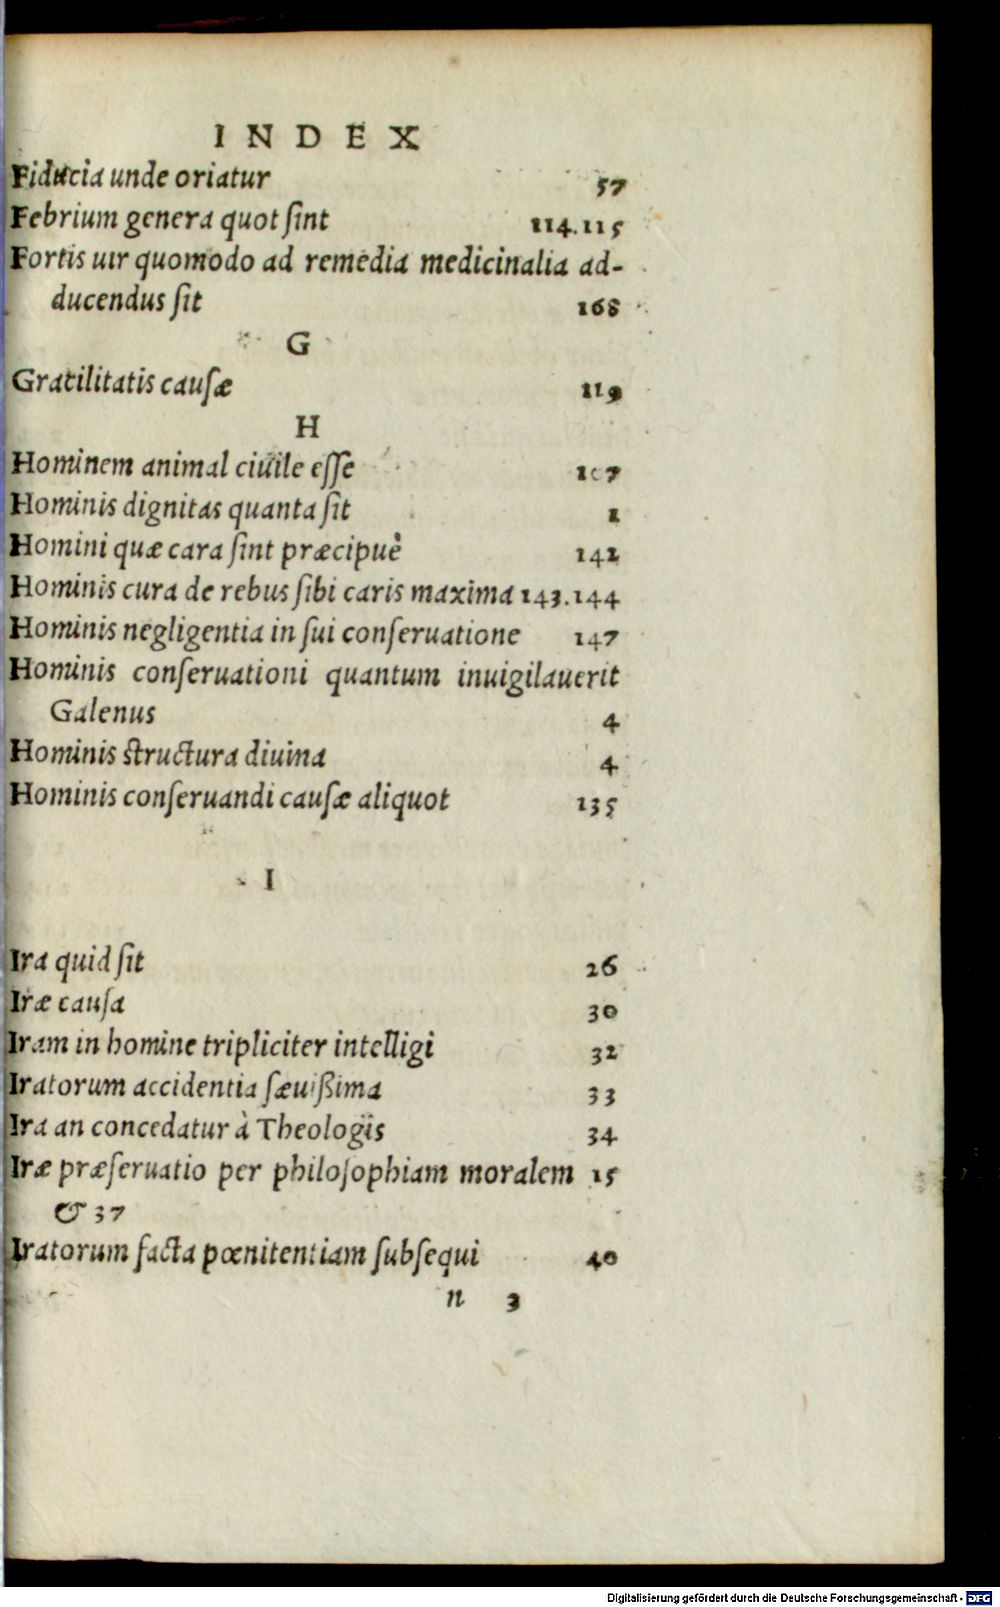 INDEX
Fiducia unde oriatur 57
Febrium genera quot ſint 114.115
Fortis uir quomodo ad remedia medicinalia ad-
ducendus ſit 168
G
Gracilitatis cauſæ 119
H
Hominem animal ciuile eſſe 107
Hominis dignitas quanta ſit 1
Homini quæ cara ſint præcipuè 142
Hominis cura de rebus ſibi caris maxima 143.144
Hominis negligentia in ſui conſeruatione 147
Hominis conſeruationi quantum inuigilauerit
Galenus 4
Hominis ſtructura diuina 4
Hominis conſeruandi cauſæ aliquot 135
I
Ira quid ſit 26
Iræ cauſa 30
Iram in homine tripliciter intelligi 32
Iratorum accidentia ſæuißima 33
Ira an concedatur à Theologis 34
Iræ præſeruatio per philoſophiam moralem 15
& 37
Iratorum facta pœnitentiam ſubſequi 40
n 3
Digitalisierung gefördert durch die Deutsche Forschungsgemeinschaft - DFG